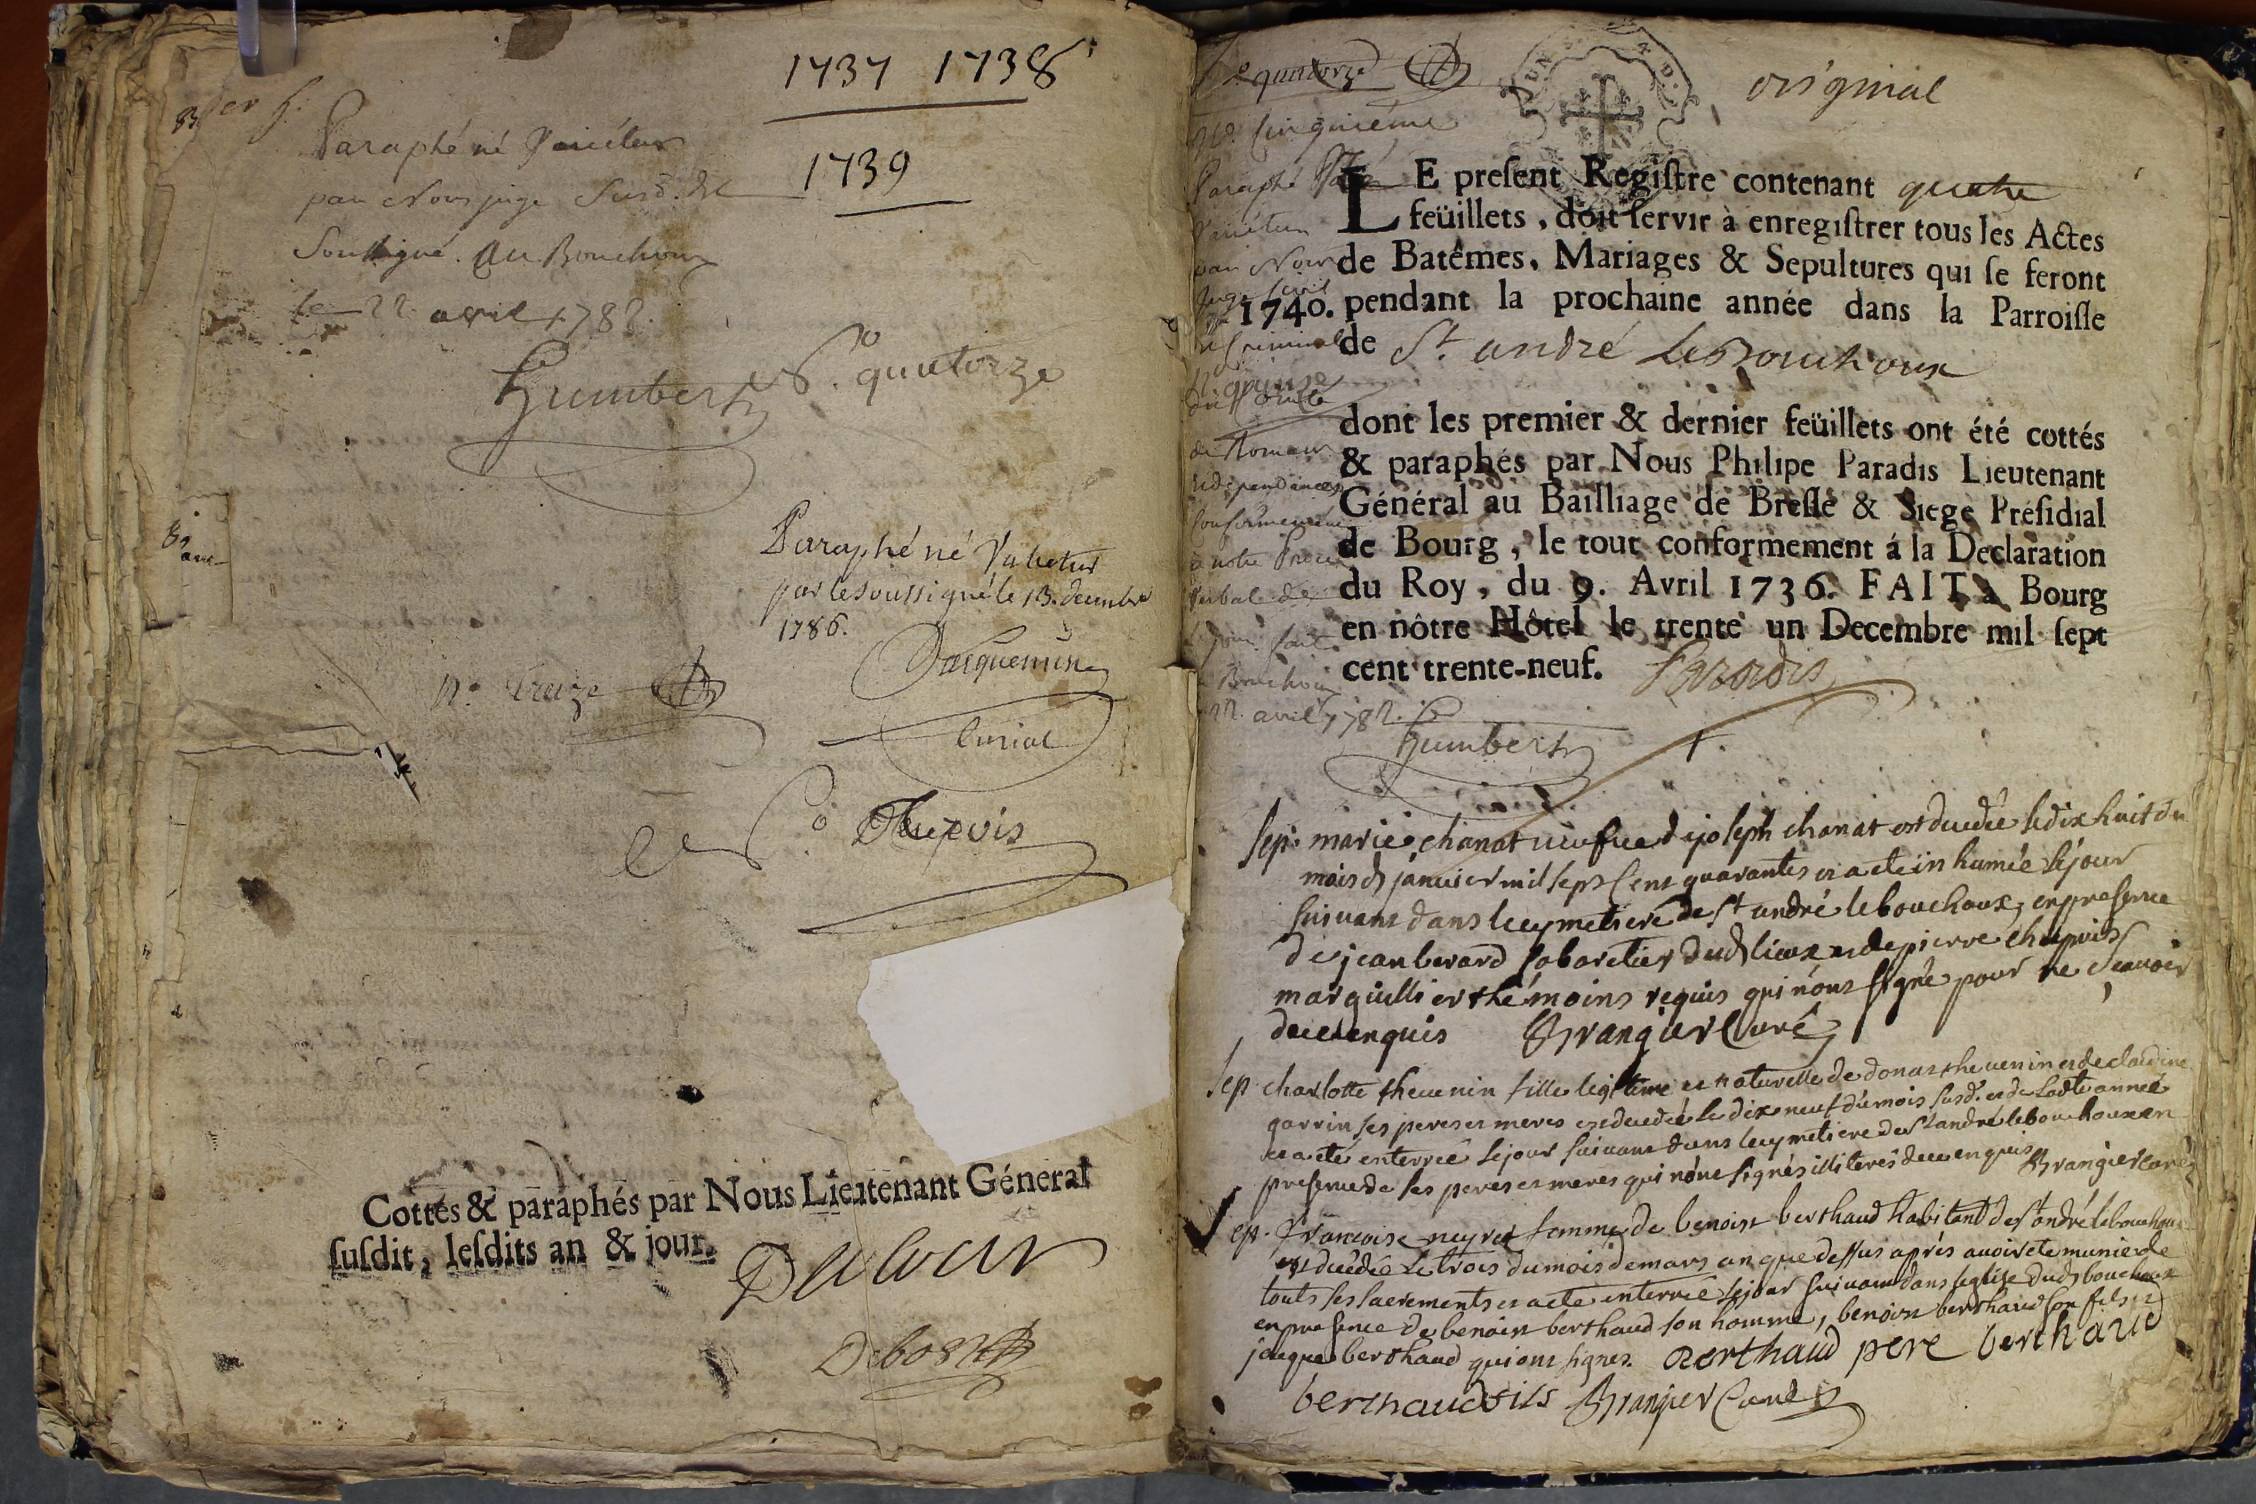 1737 1738
1739
Paraphé né Varietur
par Nous juge Susd. et
Soussigné. Au Bouchoux
le 22 avril 1782.
Humbert
No. quatorze
Paraphé né Varietur
par le soussigné le 13. decembre
1786.
Jacquemin
curial
no. Treize
Chapuis
Cottés & paraphés par Nous Lieutenant Géneral
ſuſdit, leſdits an & jour.
Debost
no. quatorze
original
no. cinquieme
Paraphé Ne
Varietur
par Nous
Juge Civil
et Criminel
du Comte
de Romans
dependances
Conformement
à notre Procès
Verbal de
ce jour fait
Bouchoux
22. avril 1782.
Humbert
LE preſent Regiſtre contenant quatre
feüillets, doit ſervir à enregiſtrer tous les Actes
de Batêmes, Mariages & Sepultures qui ſe feront
1740. pendant la prochaine année dans la Parroiſſe
de St. andré le Bouchoux
dont les premier & dernier feüillets ont été cottés
& paraphés par Nous Philipe Paradis Lieutenant
Général au Bailliage de Breſſe & Siege Préſidial
de Bourg, le tout conformement á la Declaration
du Roy, du 9. Avril 1736. FAIT à Bourg
en nôtre Hôtel le trente un Decembre mil ſept
cent trente-neuf. Paradis
sep. marie chanat veufve de joseph chanat est decedée le dix huit du
mois de janvier mil sept cent quarante et a eté inhumée le jour
suivant dans le cymetiere de st andré le bouchoux, en presence
de jean berard cabaretier dud lieux et de pierre chapuis
marguillier thémoins requis qui n'ont signé pour ne scavoir
de ce enquis Brangier Curé
sep. charlotte thevenin fille legitime et naturelle de donat thevenin et de claudine
garrin ses peres et meres est decedée le dix neuf du mois susd. et de ladte année
et a eté enterrée le jour suivant dans le cymetiere de st andré le bouchoux en
presence de ses peres et meres qui n'ont signés illiterés de ce enquis Brangier curé
sep. francoise neyret femme de benoist berthaud habitant de st andré le bouchoux
est decedée le trois du mois de mars an que dessus aprés avoir eté munie de
touts ses sacrements et a eté enterrée le jour suivant dans leglise dud bouchoux
en presence de benoist berthaud son homme, benoist berthaud son fils et
jacques berthaud qui ont signes. berthaud pere berthaud
berthaud fils Brangier Curé